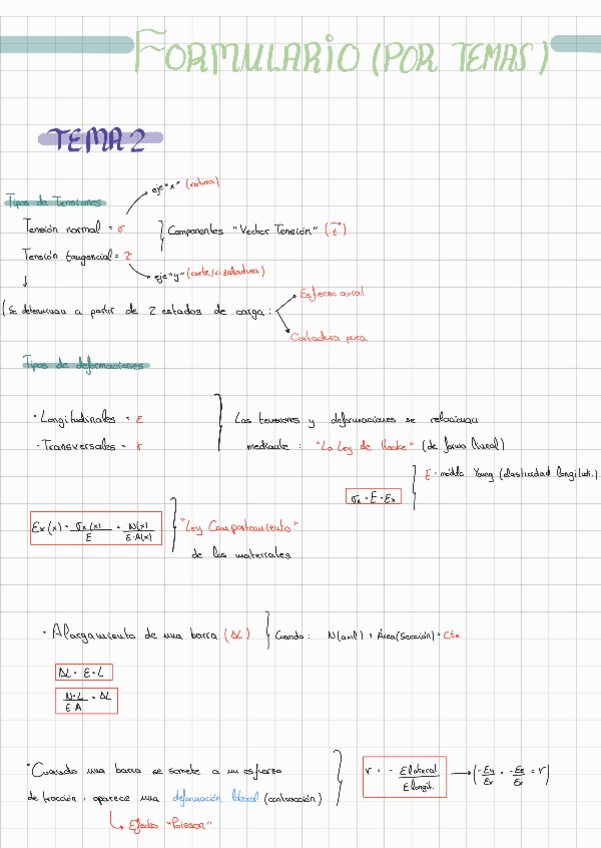 FORMULARIO (POR TEMAS)
TEMA 2
Tipos de Tensiones
eje "x" (rotura)
Tensión normal = σ
Componentes "Vector Tensión" (t⃗)
Tensión tangencial = τ
eje "y" (corte/cizalladura)
(Se determinan a partir de 2 estados de carga:
Esfuerzo axial
Cortadura pura
Tipos de deformaciones
· Longitudinales = ε
· Transversales = γ
Las tensiones y deformaciones se relacionan
mediante: "La Ley de Hooke" (de forma lineal)
σx = E · εx
E = módulo Young (elasticidad longitudi.)
εx(x) = σx(x)/E = N(x)/E·A(x)
"Ley Comportamiento"
de los materiales
· Alargamiento de una barra (ΔL)
Cuando: N(axil) + Área(Sección) = Cte
ΔL = ε · L
N·L/E·A = ΔL
· Cuando una barra se somete a un esfuerzo
de tracción, aparece una deformación lateral (contracción)
Efecto "Poisson"
ν = - εlateral/εlongit. → (-εy/εx = -εz/εx = ν)